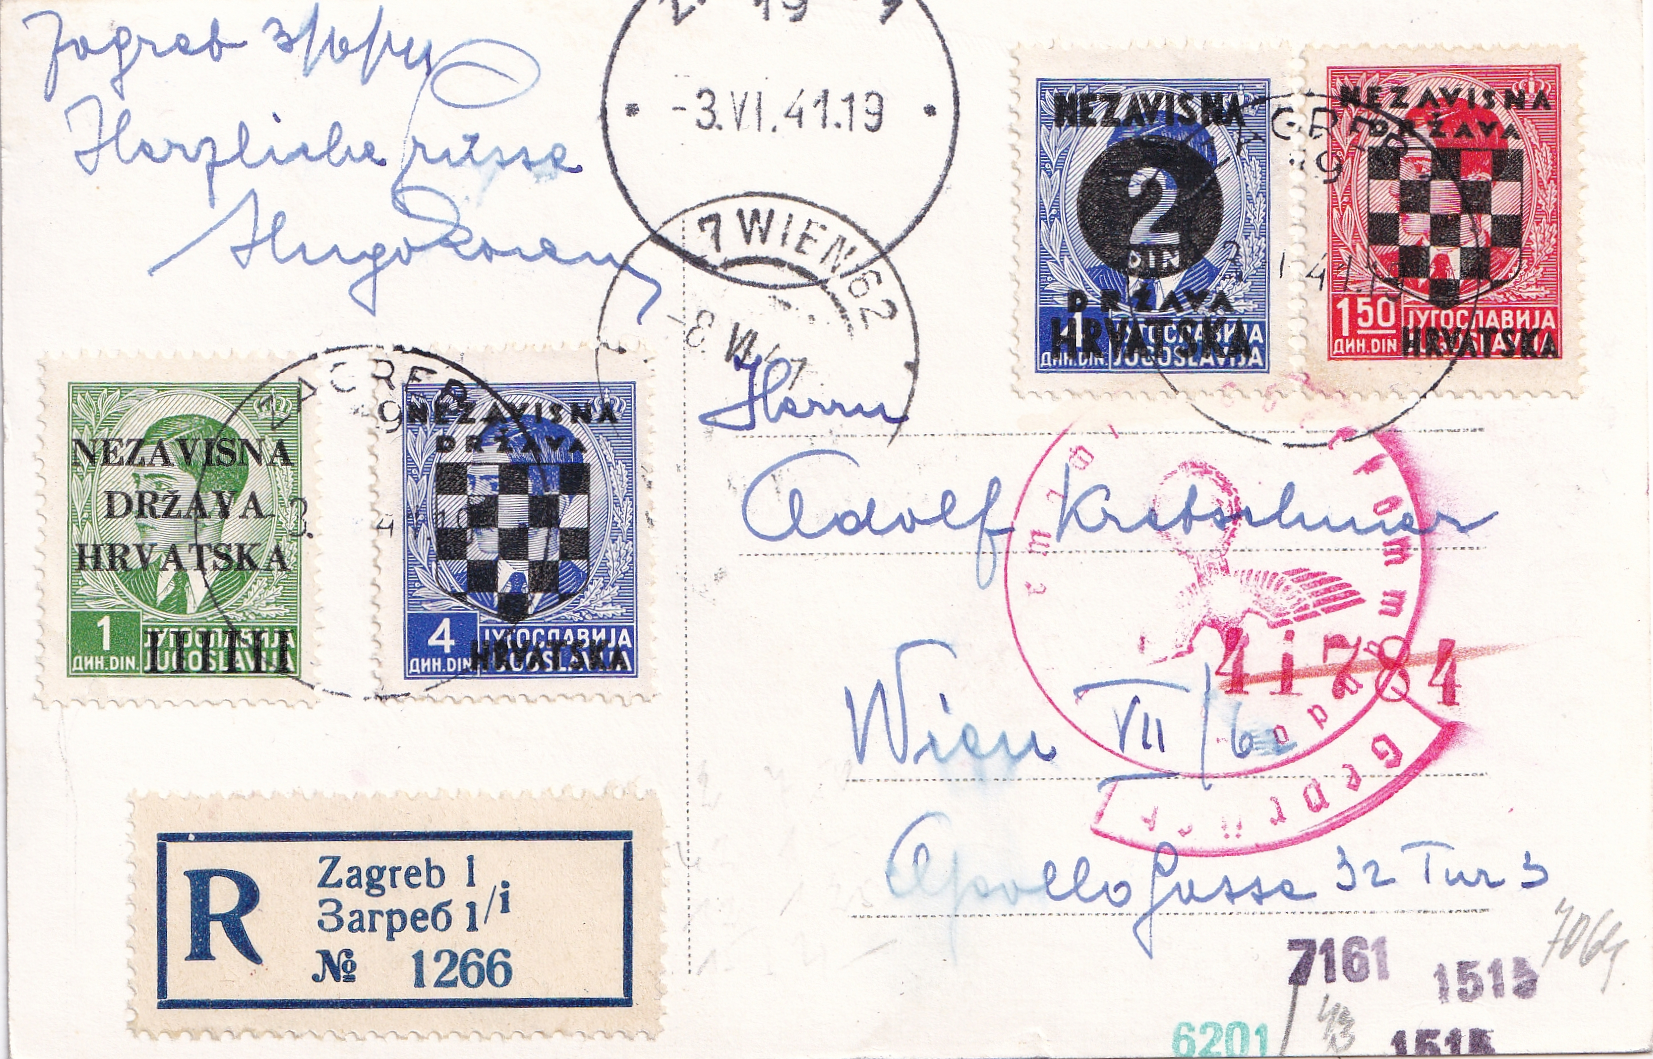 Zagreb 3/6/41
Herzliche Grüsse
19
-3.VI.41.19
7 WIEN 62
-8 VI 41
NEZAVISNA
2
DIN
DRŽAVA
HRVATSKA
ЈУГОСЛАВИЈА
ДИН. DIN. JUGOSLAVIJA
ZAGREB
NEZAVISNA
DRŽAVA
1 50 ЈУГОСЛАВИЈА
ДИН. DIN. JUGOSLAVIJA
HRVATSKA
NEZAVISNA
DRŽAVA
HRVATSKA
1 ЈУГОСЛАВИЈА
ДИН. DIN. JUGOSLAVIJA
ZAGREB
NEZAVISNA
DRŽAVA
4 ЈУГОСЛАВИЈА
ДИН. DIN. JUGOSLAVIJA
HRVATSKA
Herrn
Adolf Kretschmer
Wien VII/62
Apollo Gasse 32 Tur 3
41784
Geprüft
R
Zagreb 1
Загреб 1/i
№ 1266
7161
1515
7064
6201
43
1515